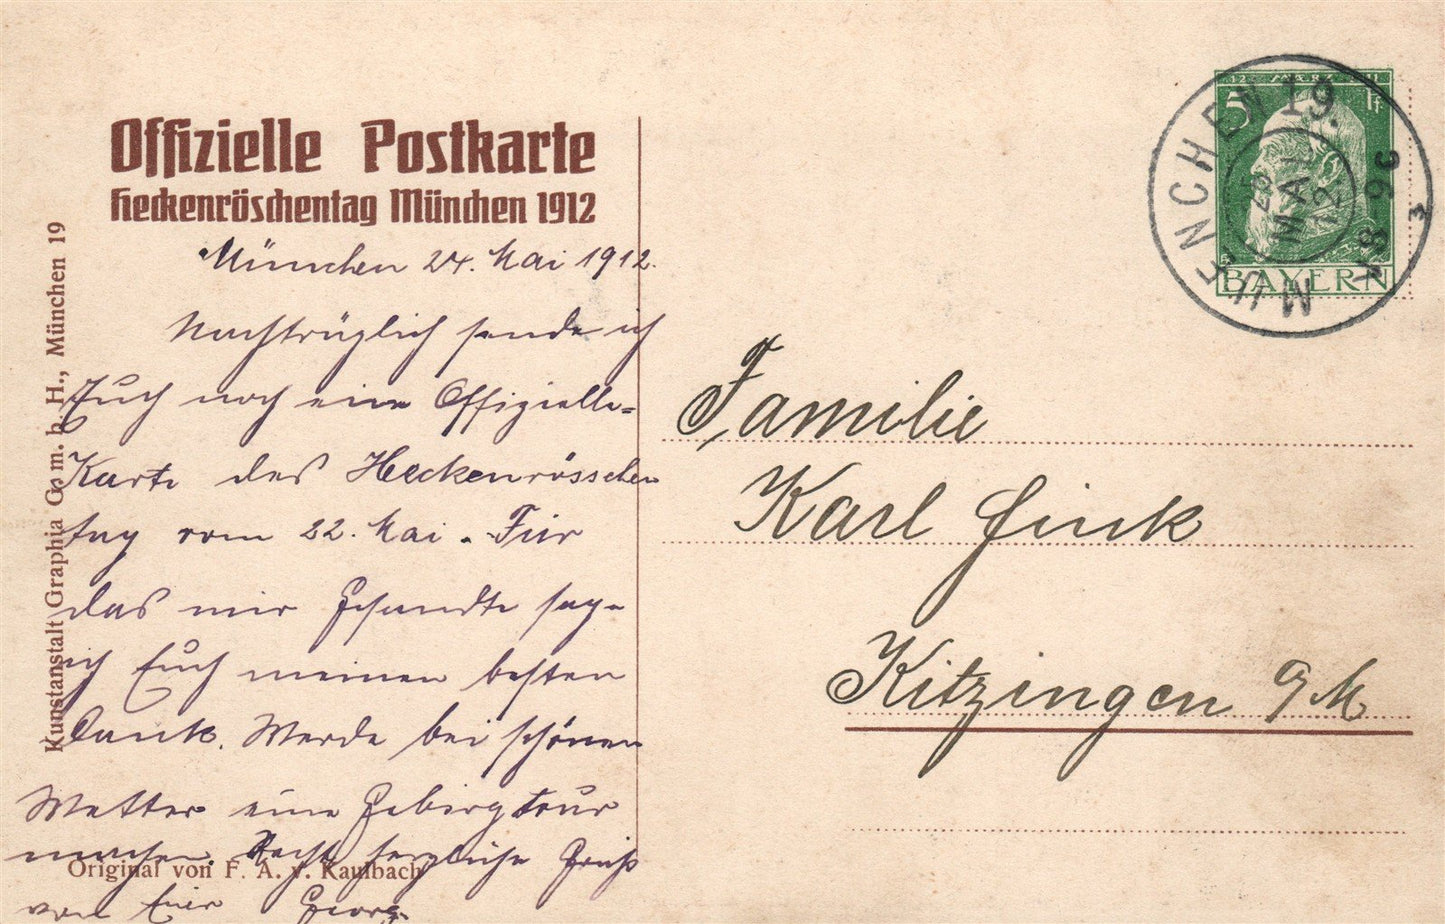 Offizielle Postkarte
Heckenröschentag München 1912
München 24. Mai 1912.
Nachträglich sende ich
Euch noch eine Offizielle-
Karte des Heckenrösschen
tag vom 22. Mai. Für
das mir Gesandte sage
ich Euch meinen besten
Dank. Werde bei schönen
Wetter eine Gebirgstour
machen. Recht herzliche Grüße
von Euer Georg.
Original von F. A. v. Kaulbach
Kunstanstalt Graphia G. m. b. H., München 19
5 Pf
BAYERN
MUENCHEN 19.
25
MAI
12
Familie
Karl Fink
Kitzingen a/M